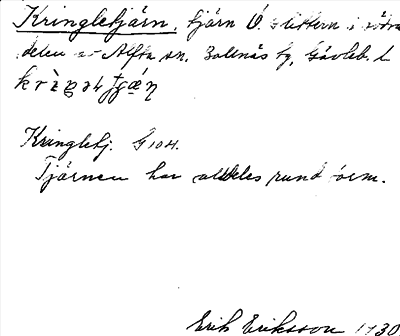 Kringletjärn, tjärn Ö. Slättern i södra
delen av Alfta sn, Bollnäs tg, Gävleb. l.
Kringletj. G 104.
Tjärnen har alldeles rund form.
Erik Eriksson 1930